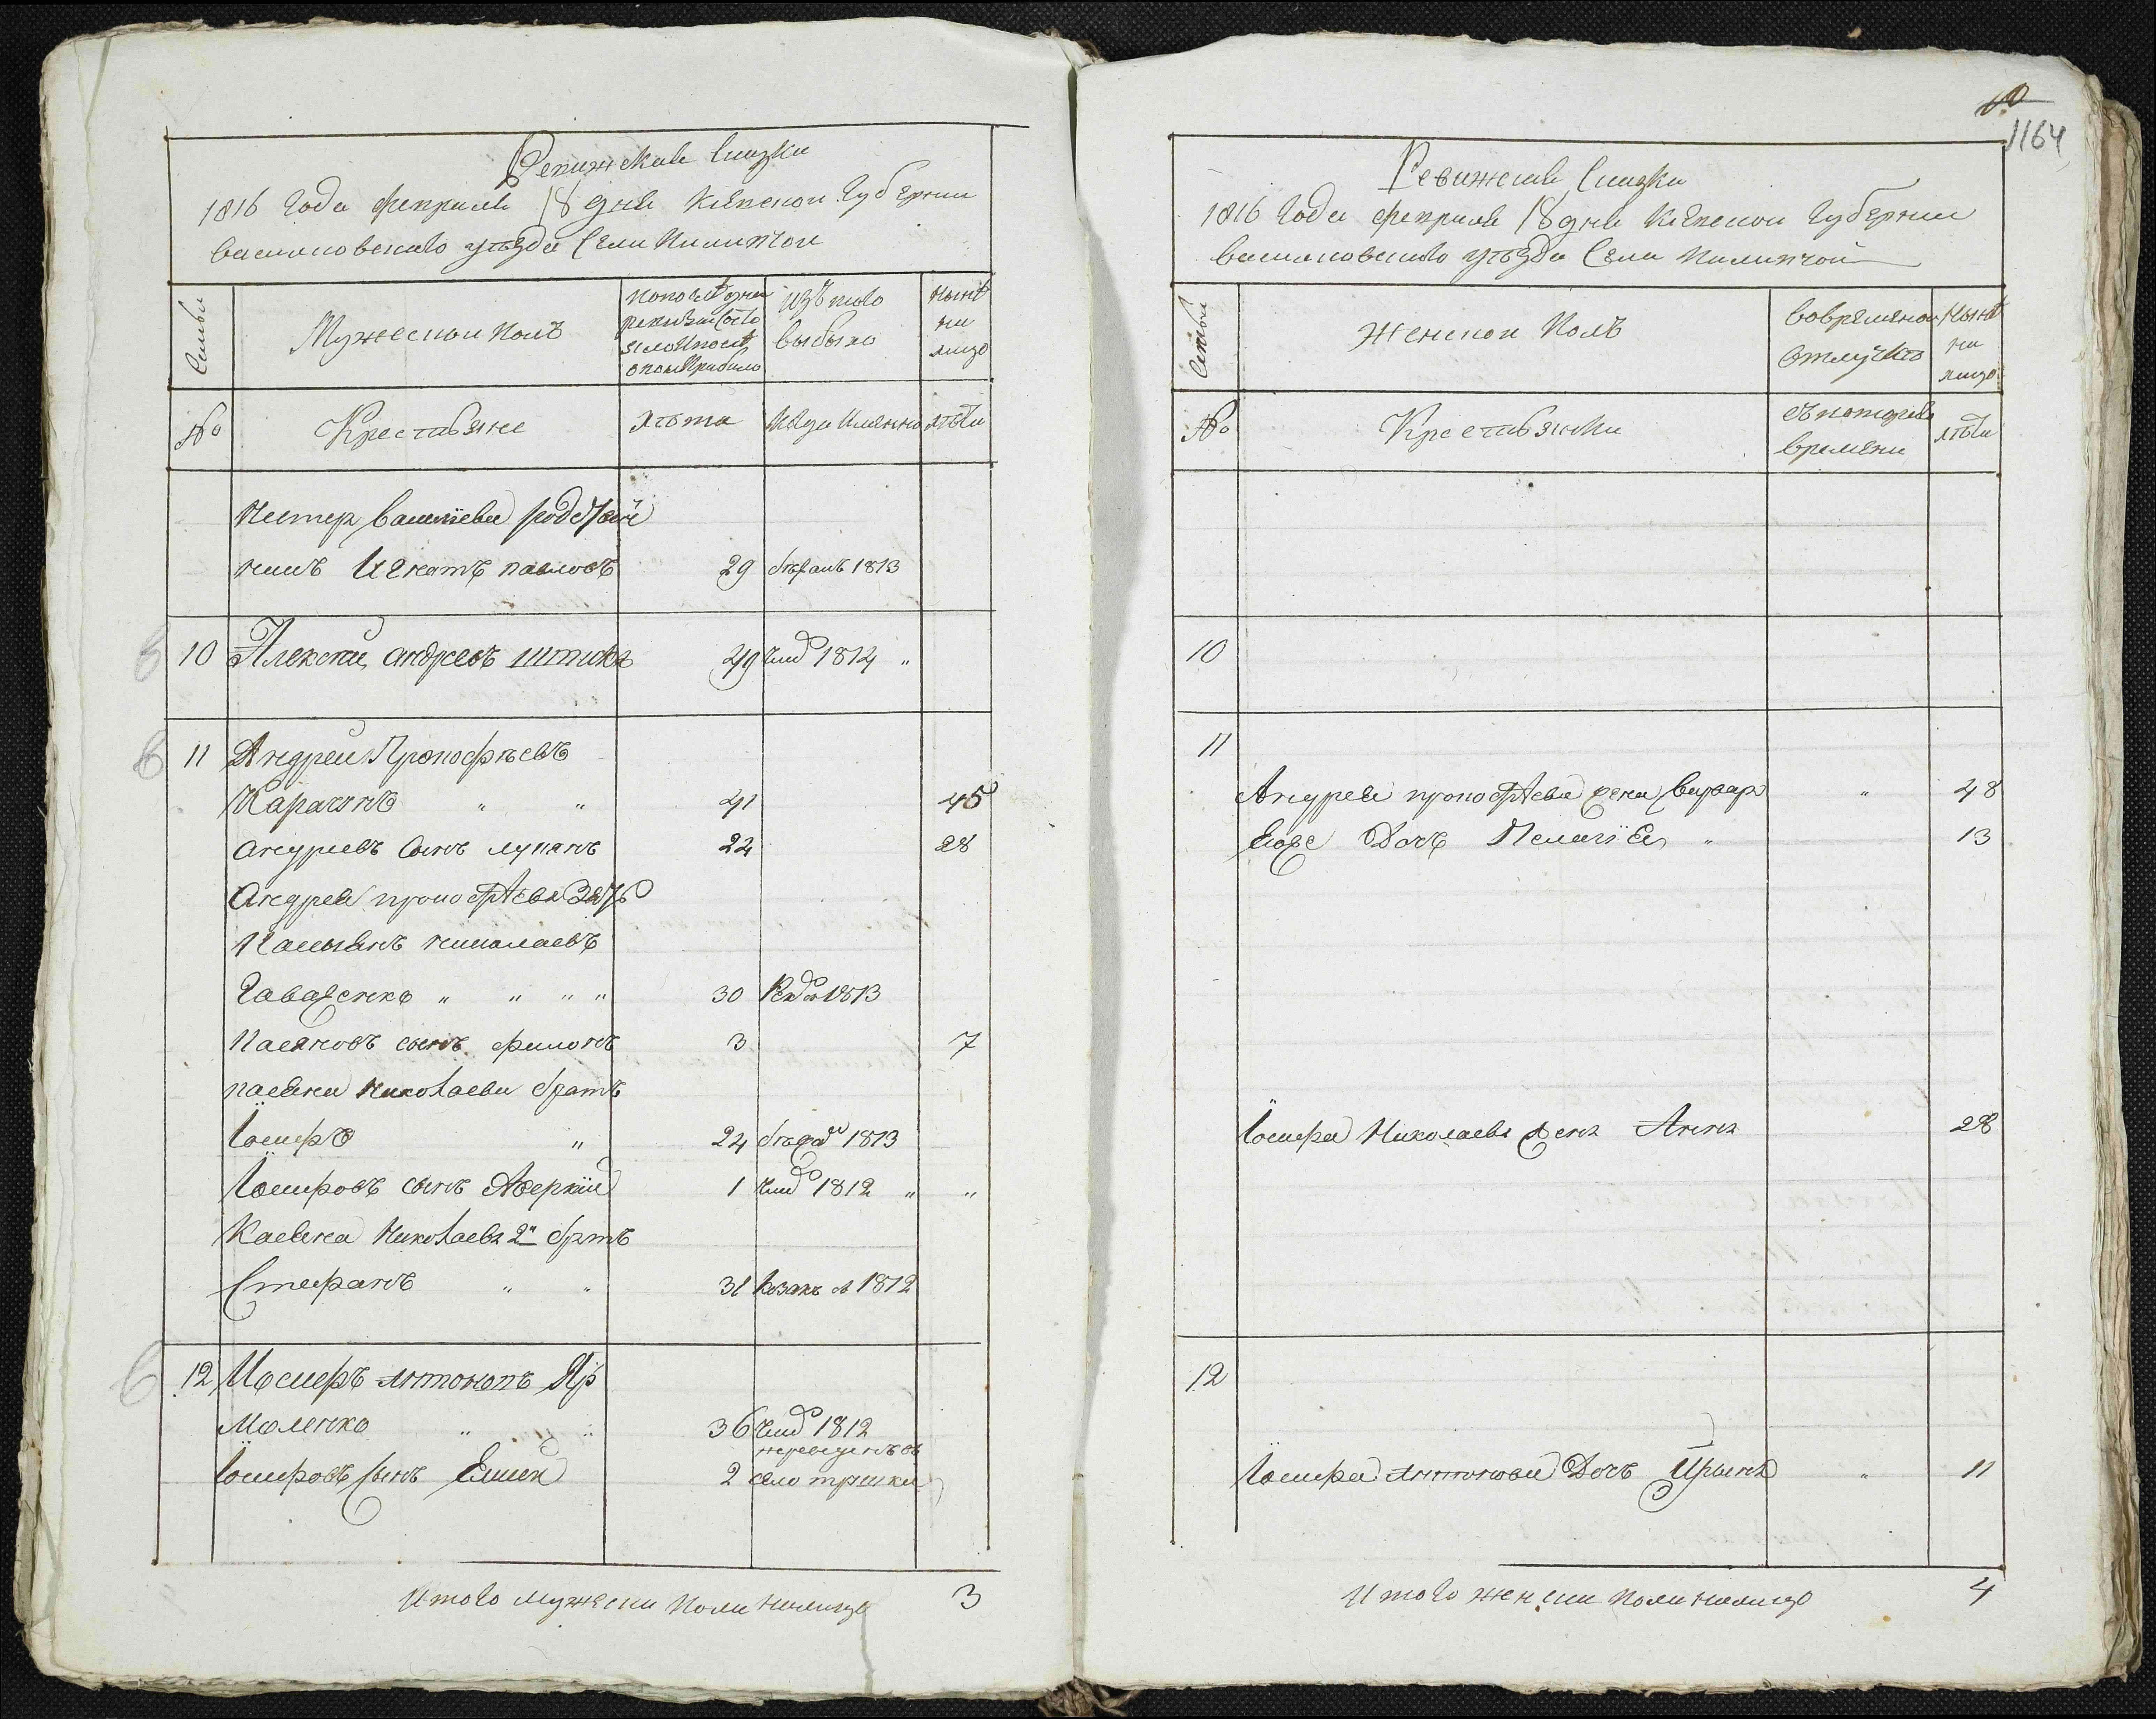 Ревижская Сказка
1816 Года февраля 18 дня Киевской Губернии
Василковского уезда Села Пилипчои
Семьи
Мужеской полъ
по последней ревизии состояло и после оной прибыло
изъ того выбыло
ныне на лицо
№
Крестьяне
лета
когда именно
лета
Нестер Василиева родствен
никъ Игнатъ павловъ 29 бежалъ 1813
10 Алексей андреевъ 49 умр 1814 "
11 Андрей Прокофьевъ
" " 41 45
андреевъ сынъ лукянъ 22 28
андрея прокофьева зять
Касьянъ николаевъ
" " " " 30 1813
Касяновъ сынъ филонъ 3 7
касяна Николаева братъ
Іосифъ " 24 бежа 1813
Іосифовъ сынъ Аверкій 1 умр 1812 " "
Касяна Николаева 2й братъ
Стефанъ " " 31 козакъ в 1812
12 Иосифъ антоновъ Яр
моленко " " 36 умр 1812
Іосифовъ сынъ 2 переведенъ въ
село
Итого мужеска пола налицо 3
1164
Ревижская Сказка
1816 Года февраля 18 дня Киевской Губернии
Василковского уезда Села Пилипчой
Семьи
Женской Полъ
вовременной отлучке
Ныне на лицо
№
Крестьянки
съ которого времени
лета
10
11
Андрея прокофьева жена Варвар " 48
Его же Дочь Пелагія " 13
Іосифа Николаева жена Анна 28
12
Іосифа антонова Дочь Ирина " 11
Итого женска пола налицо 4